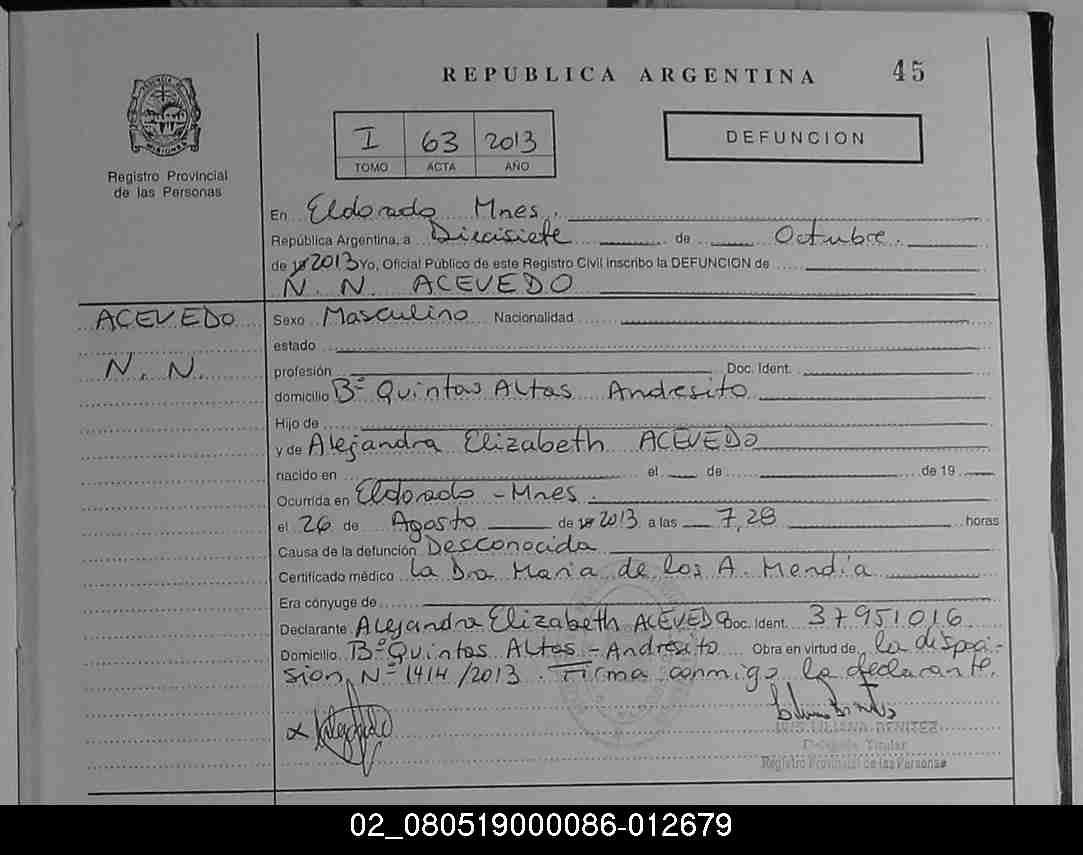 REPUBLICA ARGENTINA 45
I 63 2013
TOMO ACTA AÑO
DEFUNCION
Registro Provincial
de las Personas
En Eldorado Mnes.
República Argentina, a Diecisiete de Octubre.
de 2013 Yo, Oficial Público de este Registro Civil inscribo la DEFUNCION de
N. N. ACEVEDO
ACEVEDO
N. N.
Sexo Masculino Nacionalidad
estado
profesión Doc. Ident.
domicilio Bº Quintas Altas Andresito
Hijo de
y de Alejandra Elizabeth ACEVEDO
nacido en el de de 19
Ocurrida en Eldorado - Mnes.
el 26 de Agosto de 2013 a las 7,28 horas
Causa de la defunción Desconocida
Certificado médico la Dra Maria de los A. Mendía
Era cónyuge de
Declarante Alejandra Elizabeth ACEVEDO Doc. Ident. 37951016
Domicilio Bº Quintas Altas - Andresito Obra en virtud de la dispoci-
sion Nº 1414/2013. Firma conmigo la declarante.
LILIANA BENITEZ
Delegada Titular
Registro Provincial de las Personas
02_080519000086-012679